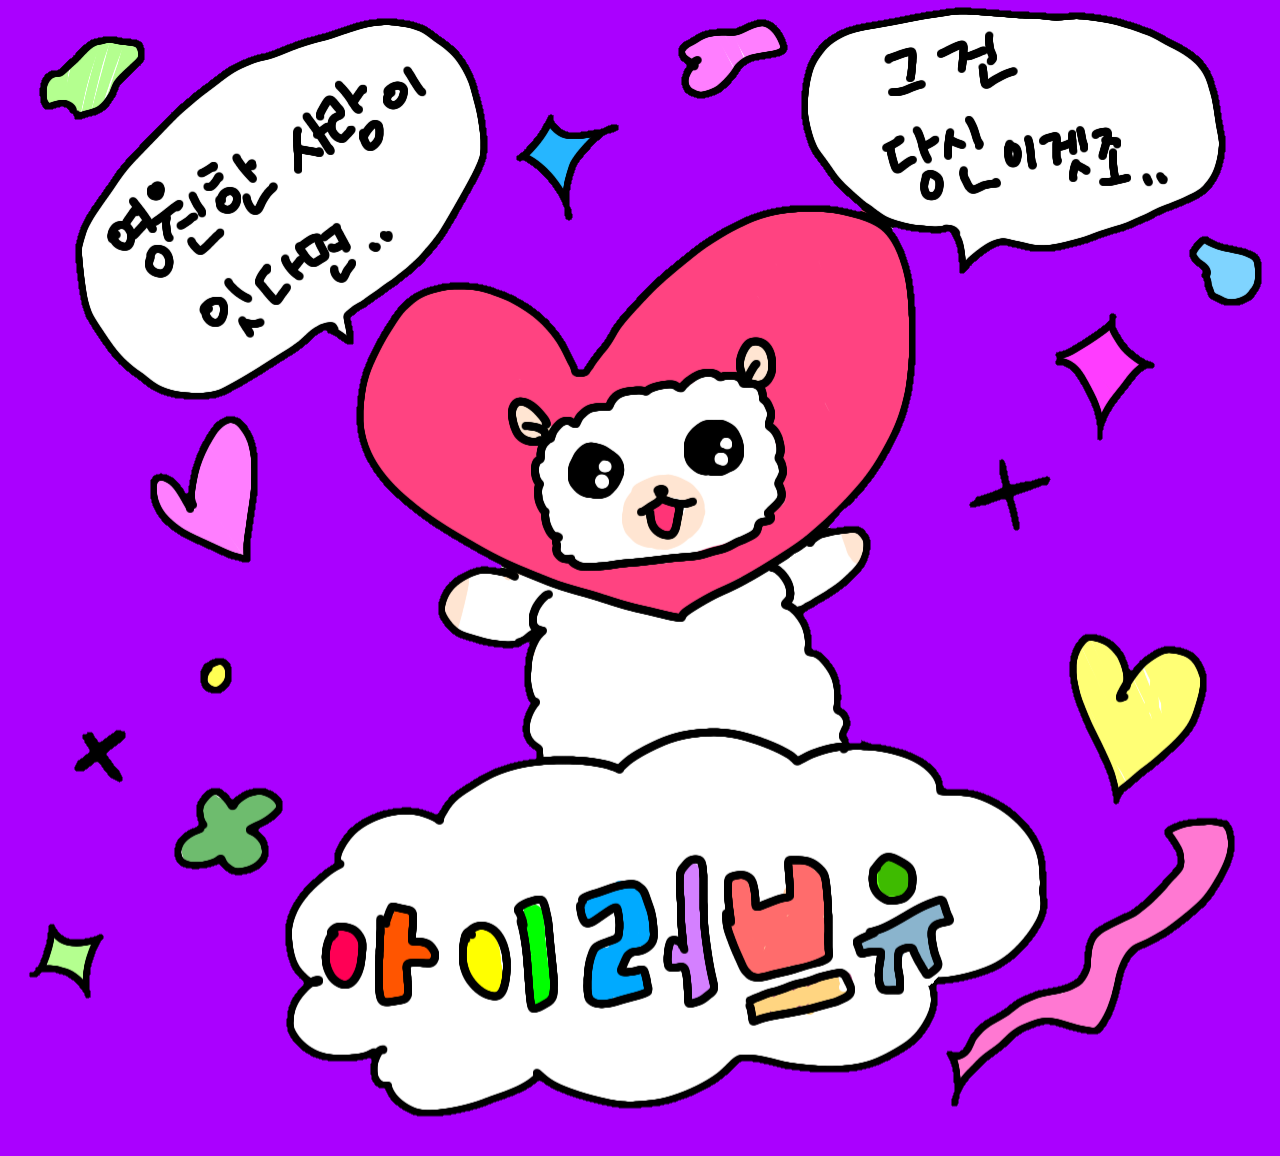 영원한 사랑이
잇다면..
그건
당신이겟죠..
아이러브유